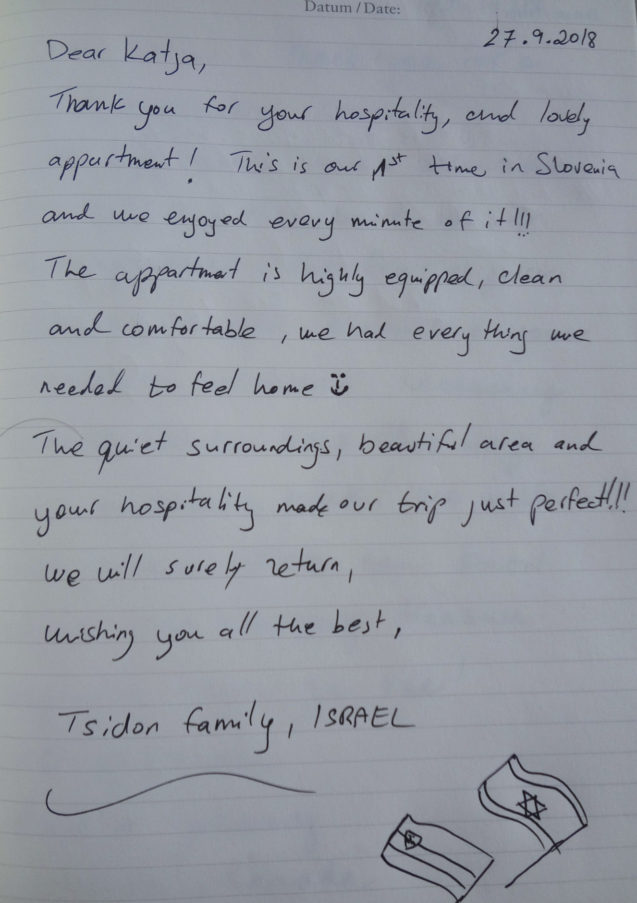 Datum / Date:
27.9.2018
Dear Katja,
Thank you for your hospitality, and lovely
appartment! This is our 1st time in Slovenia
and we enjoyed every minute of it!!!
The appartmet is highly equipped, clean
and comfortable, we had every thing we
needed to feel home :)
The quiet surroundings, beautiful area and
your hospitality made our trip just perfect!!!
We will surely return,
wishing you all the best,
Tsidon family, ISRAEL